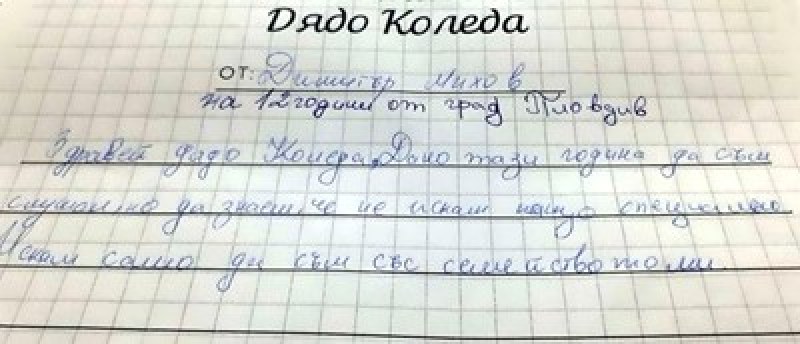 Дядо Коледа
от: Димитър Михов
на 12 години от град Пловдив
Здравей дядо Коледа, Дано тази година да съм
слушен, но да знаеш, че не искам нищо специално
Искам само да съм със семейството ми.